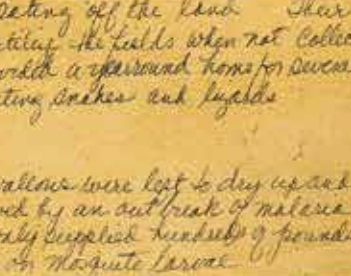 eating off the land Their
the fields when not collec
a yearround home for severa
ting snakes and lizards
allows were left to dry up and
ed by an outbreak of malaria
only supplied hundreds of pounds
on mosquito larvae